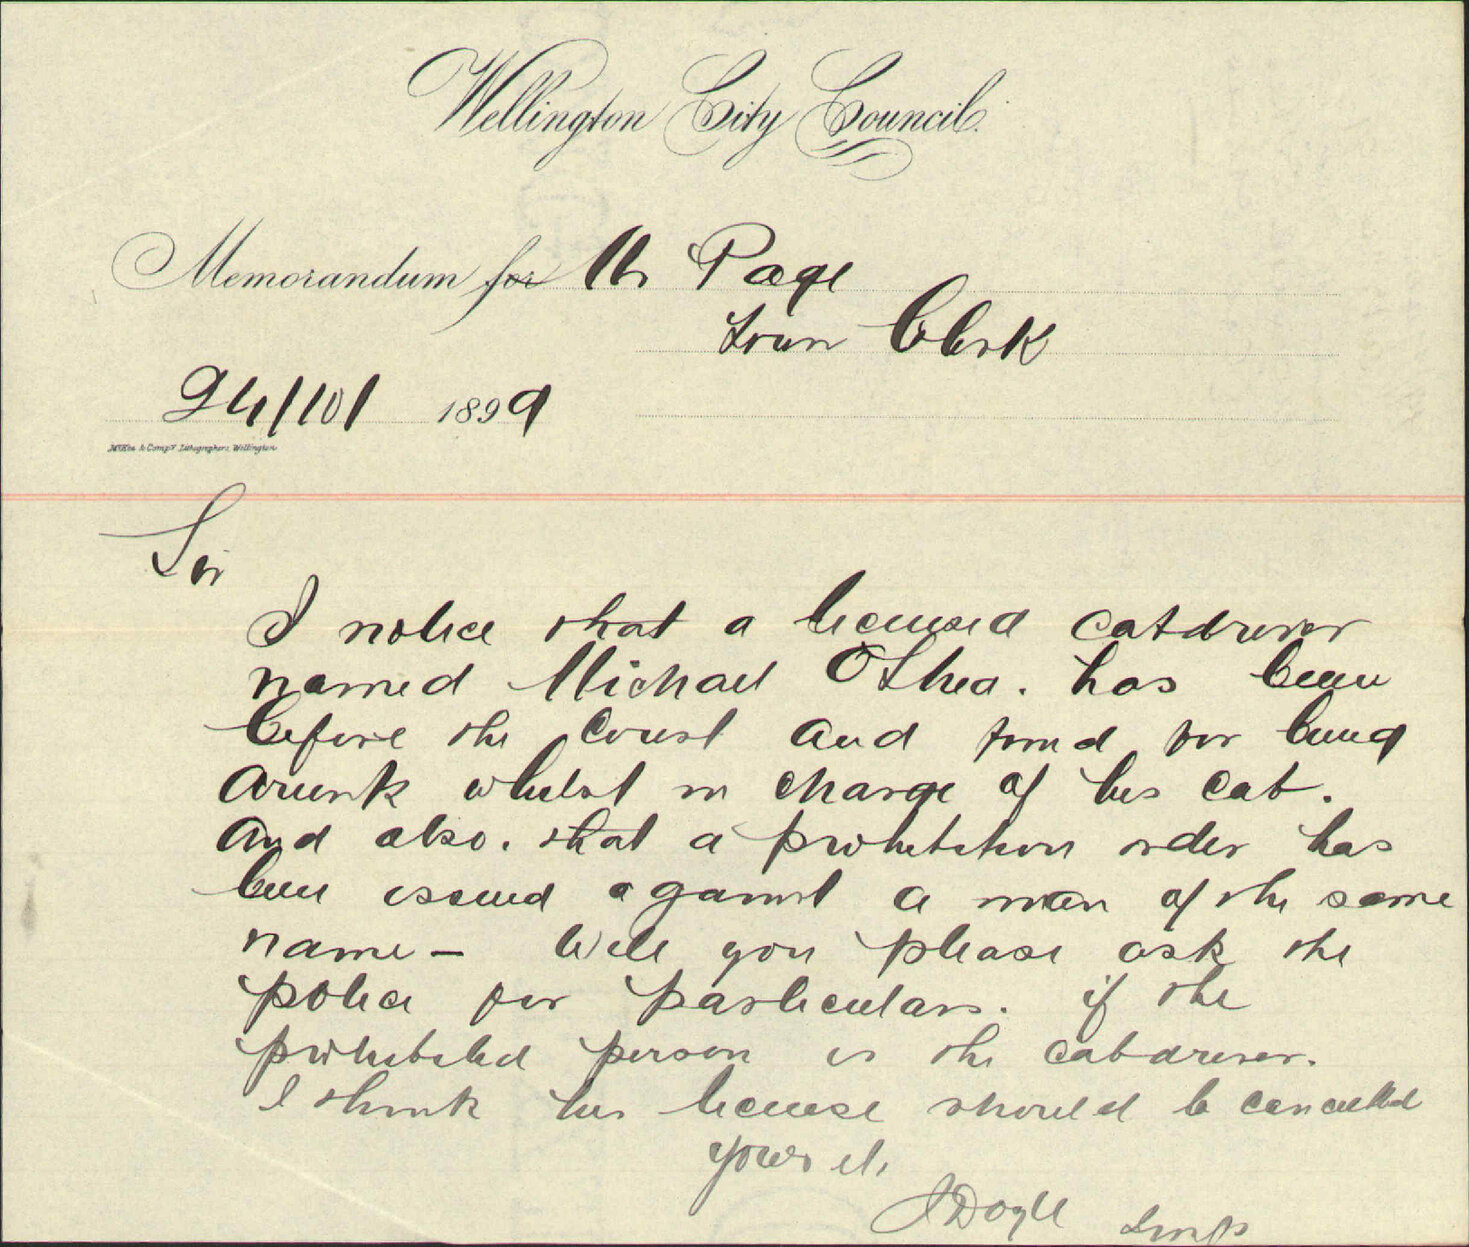 Wellington City Council.
Memorandum for Mr Page
Town Clerk
24/10/ 1899
McKee & Compy Lithographers Wellington
Sir
I notice that a licensed cabdriver
named Michael O'Shea. has been
before the Court and fined for being
drunk whilst in charge of his cab.
And also. that a prohibition order has
been issued against a man of the same
name – Will you please ask the
police for particulars. if the
prohibited person is the cabdriver.
I think his license should be cancelled
Yours etc
J Doyle Insp